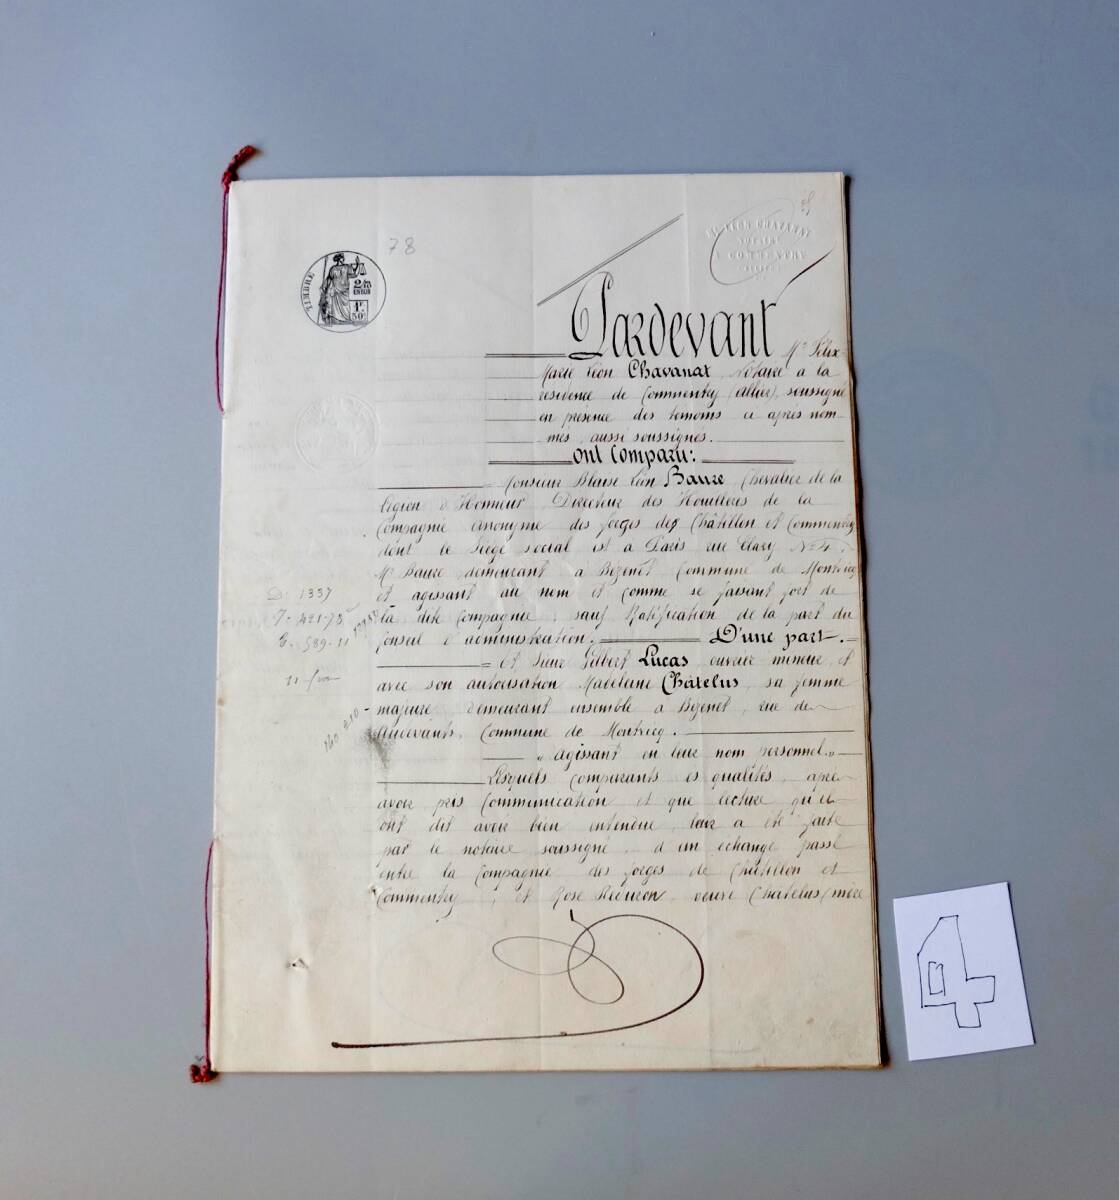 78
TIMBRE
1F.
50c
Me LÉON CHAVANAT
NOTAIRE
A COMMENTRY
(ALLIER)
Pardevant Me Félix
Marie Léon Chavanat, Notaire à la
résidence de Commentry (Allier), soussigné
en présence des témoins ci après nom-
més, aussi soussignés.
Ont Comparu:
Monsieur Blaise Léon Baure, Chevalier de la
Légion d'Honneur, Directeur des Houillères de la
Compagnie anonyme des forges de Châtillon et Commentry
dont le Siège social est à Paris rue No 4.
Mr Baure demeurant à Bézenet Commune de Montvicq
et agissant au nom et comme se faisant fort de
la dite Compagnie, sauf Ratification de la part du
Conseil d'administration. D'une part.
Et Sieur Gilbert Lucas, ouvrier mineur, et
avec son autorisation Madeleine Châtelus, sa femme
majeure, demeurant ensemble à Bézenet, rue des
Commune de Montvicq.
"agissant en leur nom personnel."
Lesquels comparants ès qualités, après
avoir pris Communication et que lecture qu'ils
ont dit avoir bien entendue, leur a été faite
par le notaire soussigné, d'un échange passé
entre la Compagnie des forges de Châtillon et
Commentry, et Rose veuve Châtelus, mère
D. 1337
11
4